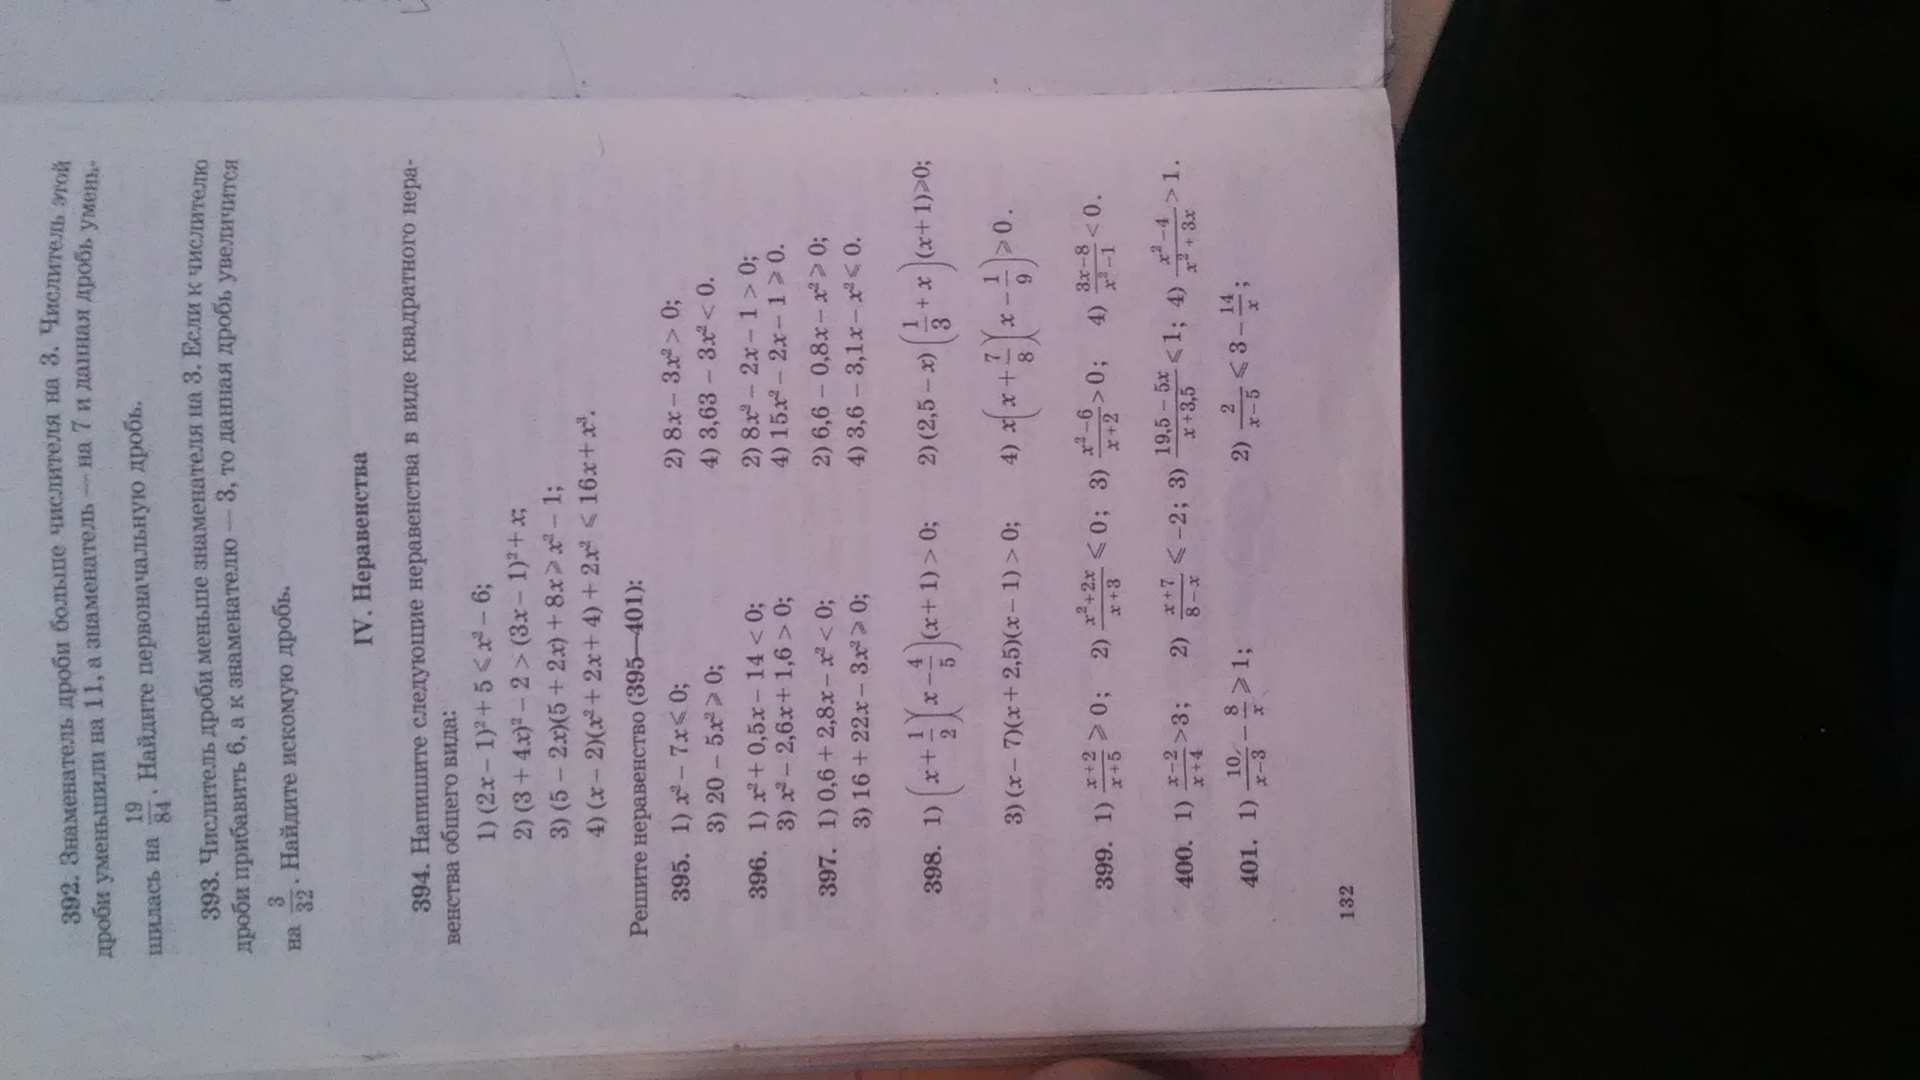 392. Знаменатель дроби больше числителя на 3. Числитель этой
дроби уменьшили на 11, а знаменатель — на 7 и данная дробь умень-
шилась на 19/84. Найдите первоначальную дробь.
393. Числитель дроби меньше знаменателя на 3. Если к числителю
дроби прибавить 6, а к знаменателю — 3, то данная дробь увеличится
на 3/32. Найдите искомую дробь.
IV. Неравенства
394. Напишите следующие неравенства в виде квадратного нера-
венства общего вида:
1) (2x − 1)² + 5 ⩽ x² − 6;
2) (3 + 4x)² − 2 > (3x − 1)² + x;
3) (5 − 2x)(5 + 2x) + 8x ⩾ x² − 1;
4) (x − 2)(x² + 2x + 4) + 2x² ⩽ 16x + x³.
Решите неравенство (395—401):
395. 1) x² − 7x ⩽ 0; 2) 8x − 3x² > 0;
3) 20 − 5x² ⩾ 0; 4) 3,63 − 3x² < 0.
396. 1) x² + 0,5x − 14 < 0; 2) 8x² − 2x − 1 > 0;
3) x² − 2,6x + 1,6 > 0; 4) 15x² − 2x − 1 ⩾ 0.
397. 1) 0,6 + 2,8x − x² < 0; 2) 6,6 − 0,8x − x² ⩾ 0;
3) 16 + 22x − 3x² ⩾ 0; 4) 3,6 − 3,1x − x² ⩽ 0.
398. 1) (x + 1/2)(x − 4/5)(x + 1) > 0; 2) (2,5 − x)(1/3 + x)(x + 1) ⩾ 0;
3) (x − 7)(x + 2,5)(x − 1) > 0; 4) x(x + 7/8)(x − 1/9) ⩾ 0.
399. 1) (x+2)/(x+5) ⩾ 0; 2) (x²+2x)/(x+3) ⩽ 0; 3) (x²−6)/(x+2) > 0; 4) (3x−8)/(x²−1) < 0.
400. 1) (x−2)/(x+4) > 3; 2) (x+7)/(8−x) ⩽ −2; 3) (19,5−5x)/(x+3,5) ⩽ 1; 4) (x²−4)/(x²+3x) > 1.
401. 1) 10/(x−3) − 8/x ⩾ 1; 2) 2/(x−5) ⩽ 3 − 14/x;
132